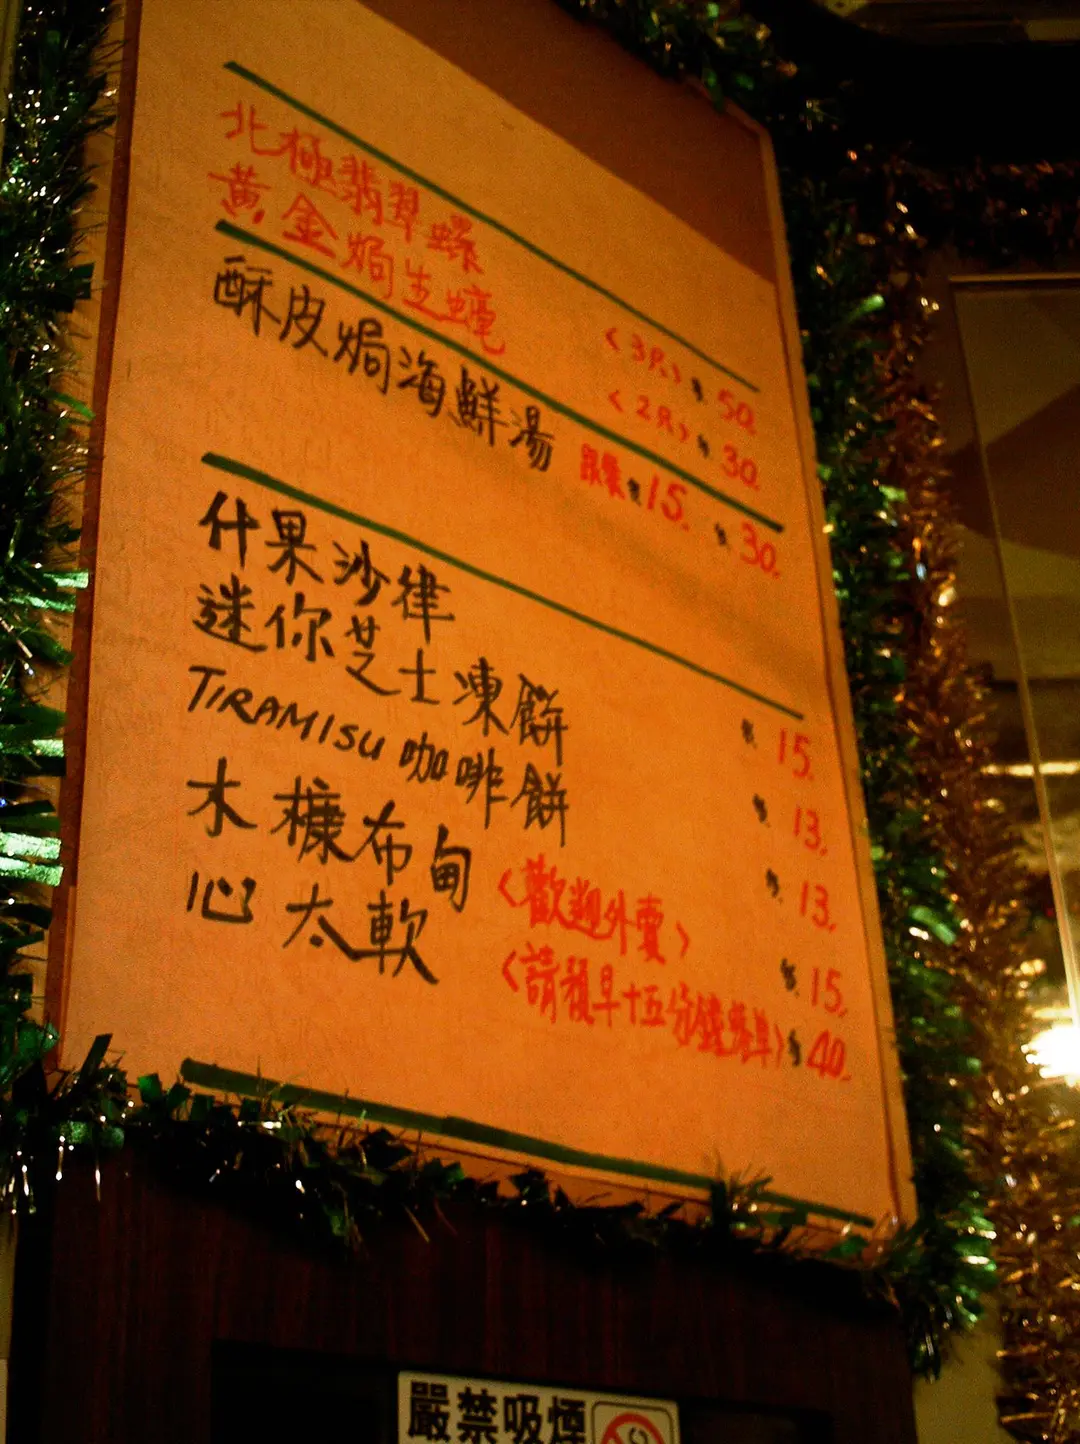 北極翡翠螺 <3只> $50.
黃金焗生蠔 <2只> $30.
酥皮焗海鮮湯 跟餐$15. $30.
什果沙律 $15.
迷你芝士凍餅 $13.
TIRAMISU咖啡餅 $13.
木糠布甸 <歡迎外賣> $15.
心太軟 <請預早十五分鐘落單> $40.
嚴禁吸煙